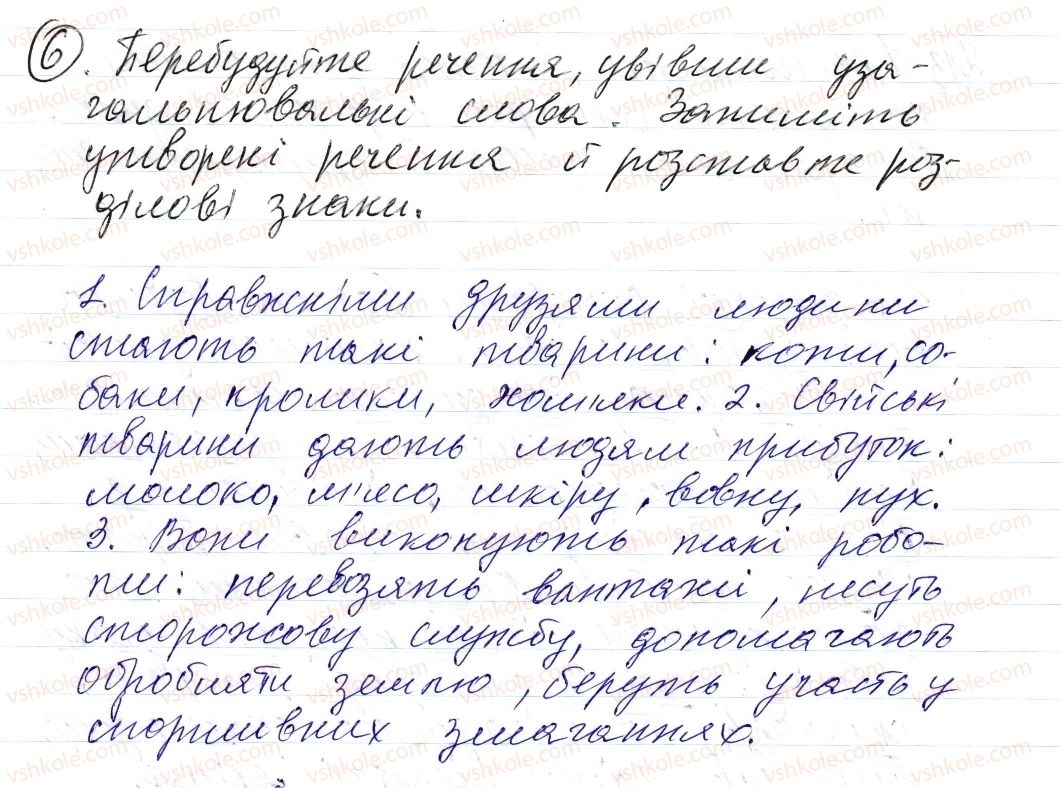 6. Перебудуйте речення, увівши уза-
гальнювальні слова. Запишіть
утворені речення й розставте роз-
ділові знаки.
1. Справжніми друзями людини
стають такі тварини: коти, со-
баки, кролики, хом'яки. 2. Свійські
тварини дають людям прибуток:
молоко, м'ясо, шкіру, вовну, пух.
3. Вони виконують такі робо-
ти: перевозять вантажі, несуть
сторожову службу, допомагають
обробляти землю, беруть участь у
спортивних змаганнях.